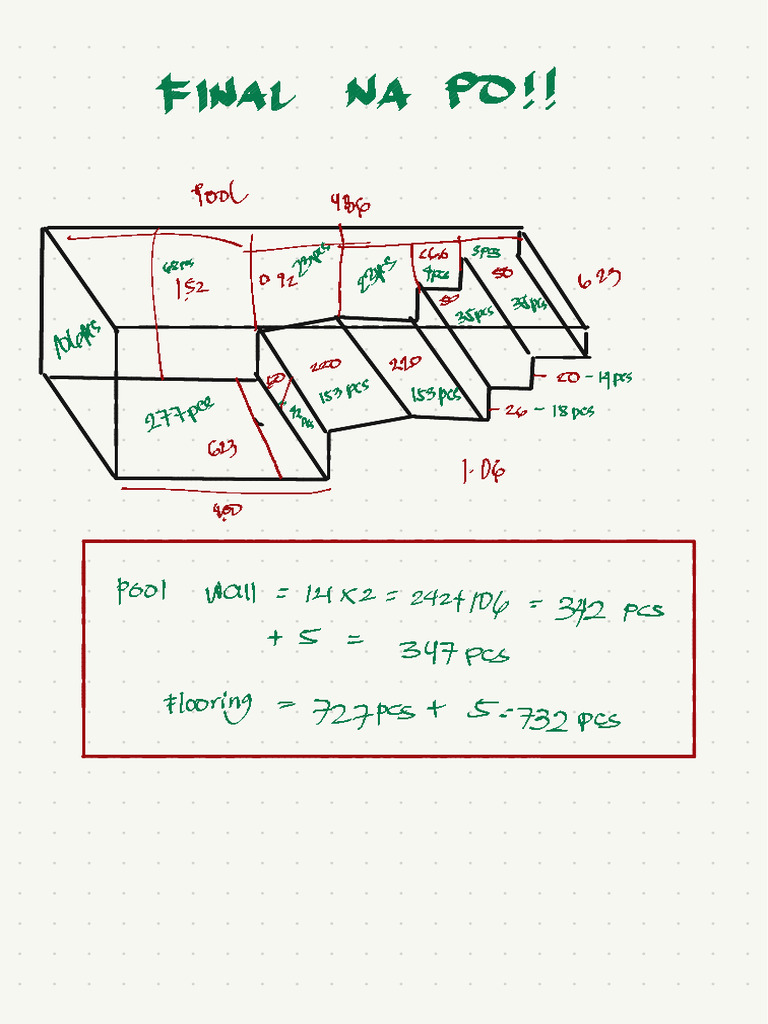 FINAL NA PO!!
Pool
486
68pcs
152
0.92
23pcs
23pcs
9pcs
5pcs
50
623
106pcs
50
35pcs
35pcs
60
220
153 pcs
210
153pcs
20 - 14 pcs
26 - 18 pcs
277 pcs
623
1.06
400
Pool Wall = 121 x 2 = 242 + 106 = 342 pcs
+ 5 = 347 pcs
Flooring = 727 pcs + 5 = 732 pcs